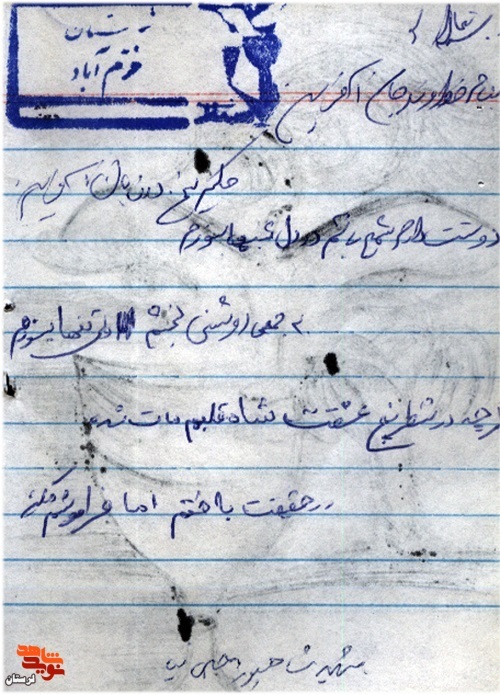 لرستان
خرم آباد
بسمه تعالی
بنام خداوند جان آفرین
حکیم سخن در زبان آفرین
دوست دارم شمع باشم در دل شبها بسوزم
به جمعی روشنی بخشم ولی تنها بسوزم
گرچه در شطرنج عشقت شاه قلبم مات شد
در حقیقت باختم اما فراموشم مکن
شهید شاهپور
نوید شاهد
لرستان